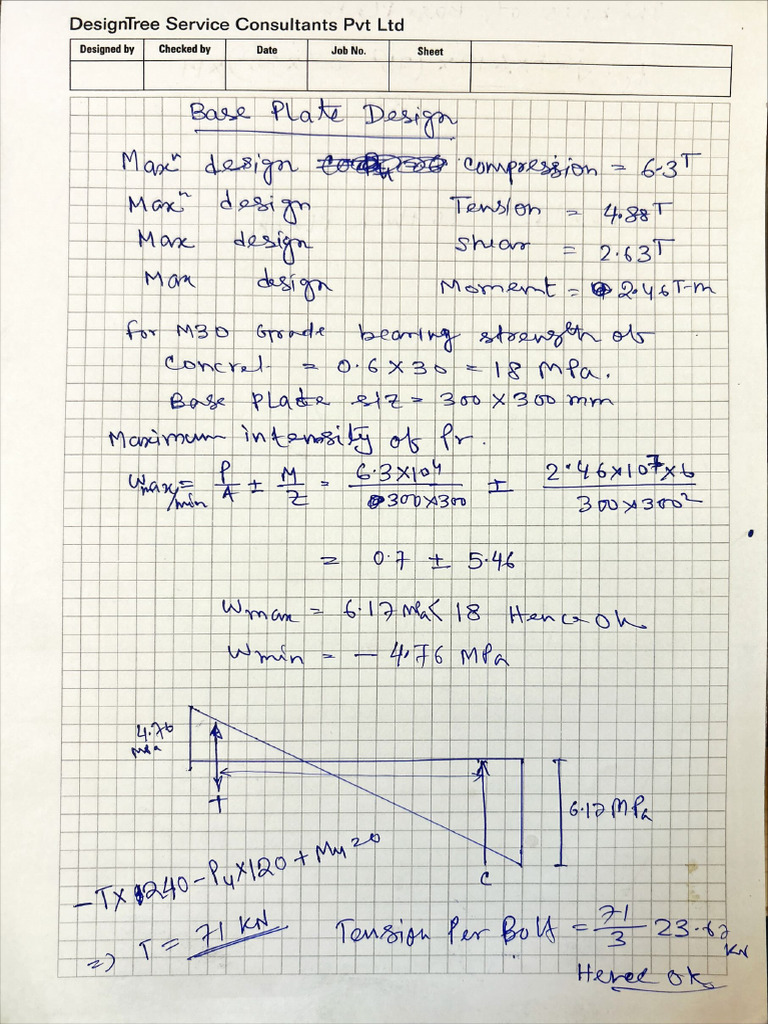 DesignTree Service Consultants Pvt Ltd
Designed by Checked by Date Job No. Sheet
Base Plate Design
Maxⁿ design compression = 6.3T
Maxⁿ design Tension = 4.88T
Max design Shear = 2.63T
Max design Moment = 2.46T-m
for M30 Grade bearing strength of
Concret = 0.6×30 = 18 MPa.
Base Plate siz = 300×300 mm
Maximum intensity of Pr.
Wmax/min = P/A ± M/Z = 6.3×10⁴/300×300 ± 2.46×10⁷×6/300×300²
= 0.7 ± 5.46
Wmax = 6.17 MPa < 18 Hence Ok
Wmin = - 4.76 MPa
4.76
MPa
T
6.17 MPa
C
-T×240-Pu×120+Mu=0
=> T = 71 KN Tension Per Bolt = 71/3 23.67
KN
Hence Ok